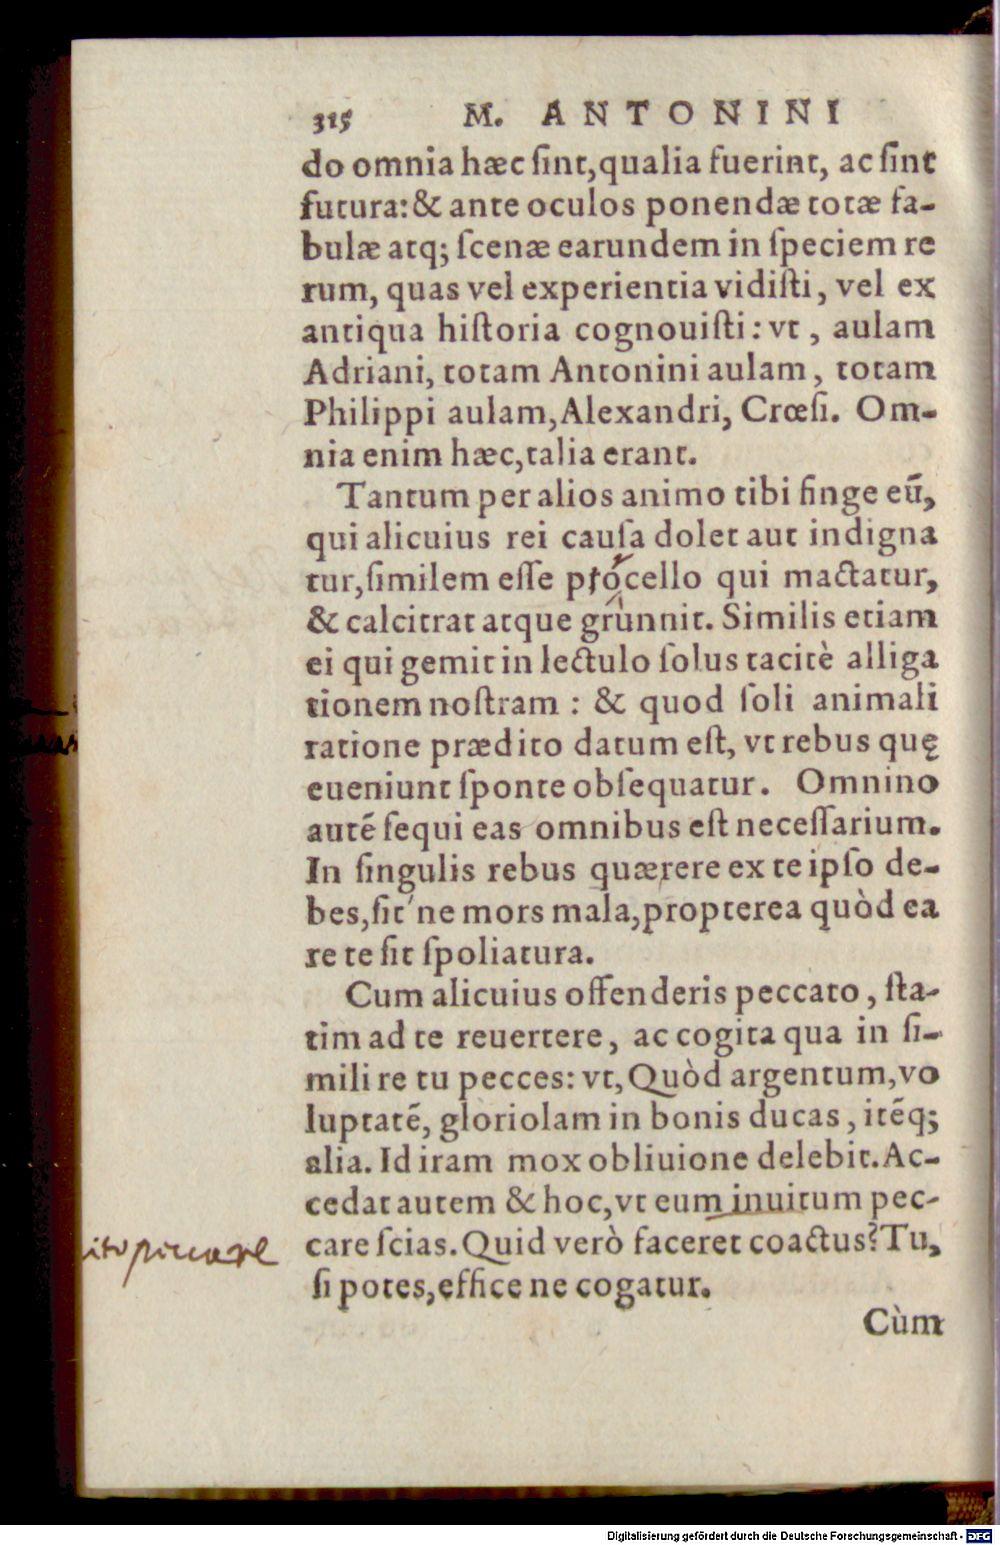 315 M. ANTONINI
do omnia hæc ſint, qualia fuerint, ac ſint
futura: & ante oculos ponendæ totæ fa-
bulæ atq; ſcenæ earundem in ſpeciem re
rum, quas vel experientia vidiſti, vel ex
antiqua hiſtoria cognouiſti: vt, aulam
Adriani, totam Antonini aulam, totam
Philippi aulam, Alexandri, Crœſi. Om-
nia enim hæc, talia erant.
Tantum per alios animo tibi finge eū,
qui alicuius rei cauſa dolet aut indigna
tur, ſimilem eſſe procello qui mactatur,
& calcitrat atque grunnit. Similis etiam
ei qui gemit in lectulo ſolus tacitè alliga
tionem noſtram: & quod ſoli animali
ratione prædito datum eſt, vt rebus quę
eueniunt ſponte obſequatur. Omnino
autē ſequi eas omnibus eſt neceſſarium.
In ſingulis rebus quærere ex te ipſo de-
bes, ſit'ne mors mala, propterea quòd ea
re te ſit ſpoliatura.
Cum alicuius offenderis peccato, ſta-
tim ad te reuertere, ac cogita qua in ſi-
mili re tu pecces: vt, Quòd argentum, vo
luptatē, gloriolam in bonis ducas, itēq;
alia. Id iram mox obliuione delebit. Ac-
cedat autem & hoc, vt eum inuitum pec-
care ſcias. Quid verò faceret coactus? Tu,
ſi potes, effice ne cogatur.
Cùm
peccare
Digitalisierung gefördert durch die Deutsche Forschungsgemeinschaft - DFG